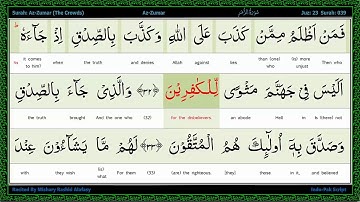 Surah: Az-Zumar (The Crowds) Az-Zumar سُوْرَةُ الزُّمَر Juz: 23 Surah: 039
فَمَنْ اَظْلَمُ مِمَّنْ كَذَبَ عَلَى اللّٰهِ وَكَذَّبَ بِالصِّدْقِ اِذْ جَآءَهٗ
it comes to him? when the truth and denies Allah against lies than (one) who (is) more unjust Then who
اَلَيْسَ فِيْ جَهَنَّمَ مَثْوًى لِّلْكٰفِرِيْنَ ﴿٣٢﴾ وَالَّذِيْ جَآءَ بِالصِّدْقِ
the truth brought And the one who (32) for the disbelievers. an abode Hell in Is (there) not
وَصَدَّقَ بِهٖٓ اُولٰٓئِكَ هُمُ الْمُتَّقُوْنَ ﴿٣٣﴾ لَهُمْ مَّا يَشَآءُوْنَ عِنْدَ
with they wish (is) what For them (33) (are) the righteous. [they] those in it, and believed
Recited By Mishary Rashid Alafasy Indo-Pak Script